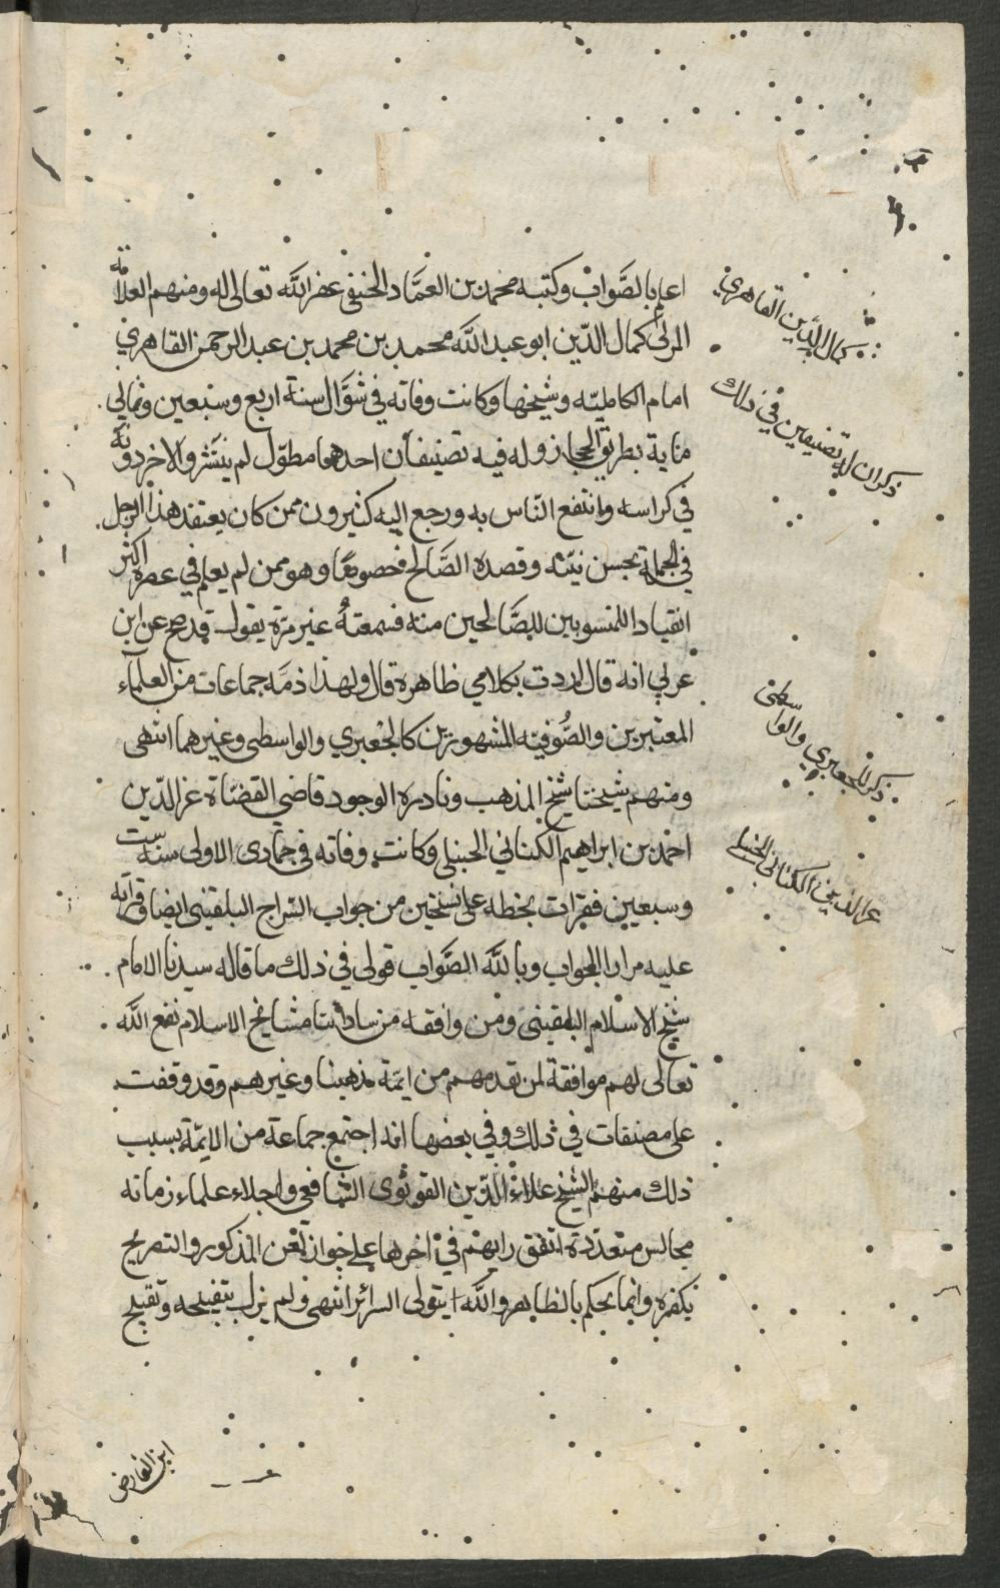 اعلم بالصَّواب وكتبه محمد بن العمَّاد الحنفى غفر الله تعالى له ومنهم العلامة
المربى كمال الدّين ابو عبد الله محمد بن محمد بن عبد الرحمن القاهري
امام الكامليّه وشيخها وكانت وفاته في شوَّال سنة اربع وسبعين وثماني
ماية بطريق الحجاز وله فيه تصنيفان احدهما مطوّل لم ينتشر والاخر دونه
في كراسه وانتفع الناس به ورجع اليه كثيرون ممن كان يعتقد هذا الرجل
في الجملة بحسن نيّته وقصده الصَّالح خصوصًا وهو ممن لم يعلم في عصره اكثر
انقيادا للمنسوبين للصَّالحين منه فسمعتهُ غير مرّة يقول قد صح عن ابن
عربي انه قال اردت بكلامي ظاهره قال ولهذا ذمّه جماعات من العلمآء
المعتبرين والصُّوفيّه المشهورين كالجعبري والواسطى وغيرهما انتهى
ومنهم شيخنا شيخ المذهب ونادرة الوجود قاضي القضاة عز الدّين
احمد بن ابراهيم الكناني الحنبلي وكانت وفاته في جمادى الاولى سنة ست
وسبعين فقرات بخطه على نسختين من جواب السّراج البلقينى ايضا وقرآته
عليه مرارا الجواب وبالله الصَّواب قولى في ذلك ما قاله سيدنا الامام
شيخ الاسلام البلقينى ومن وافقه من ساداتنا مشايخ الاسلام نفع الله
تعالى لهم موافقة لمن تقدمهم من ايمّة مذهبنا وغيرهم وقد وقفت
على مصنفات في ذلك وفي بعضها انه اجتمع جماعة من الايمّة بسبب
ذلك منهم الشيخ علاء الدّين القونوى الشافعى واجلاء علماء زمانه
مجالس متعدّدة اتفق رايهم في اخرها على جواز لعن المذكور والتصريح
بكفره وانما يحكم بالظاهر والله يتولى السرائر انتهى ولم يزل بتقبيحه وتقبيح
كمال الدّين القاهري
ذكر ان له تصنيفين في ذلك
ذكر للجعبري والواسطى
عز الدّين الكناني الحنبلي
ابن الفارض